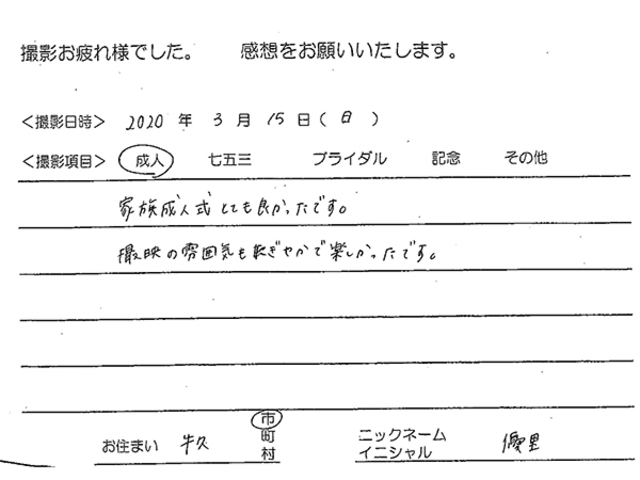 撮影お疲れ様でした。 感想をお願いいたします。
<撮影日時> 2020 年 3 月 15 日 ( 日 )
<撮影項目> 成人 七五三 ブライダル 記念 その他
家族成人式とても良かったです。
撮映の雰囲気も賑ぎやかで楽しかったです。
お住まい 牛久 市 町 村
ニックネーム イニシャル 優里